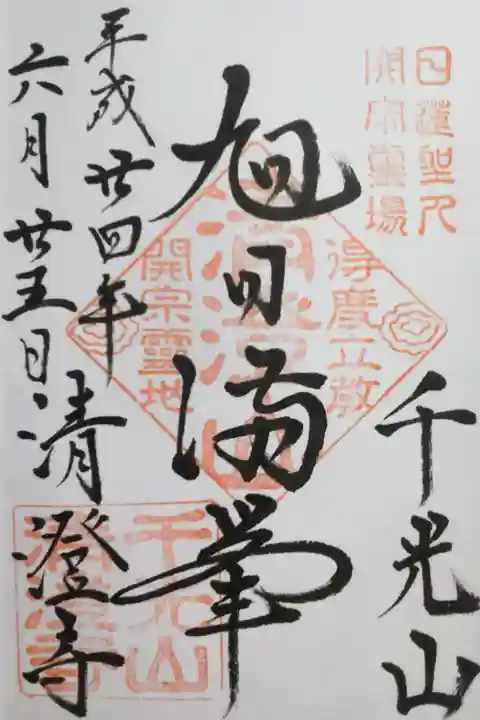 日蓮聖人
開宗霊場
千光山
得度立教
清澄山
開宗霊地
旭日満峯
平成廿四年
六月廿五日
清澄寺
千光山
清澄寺